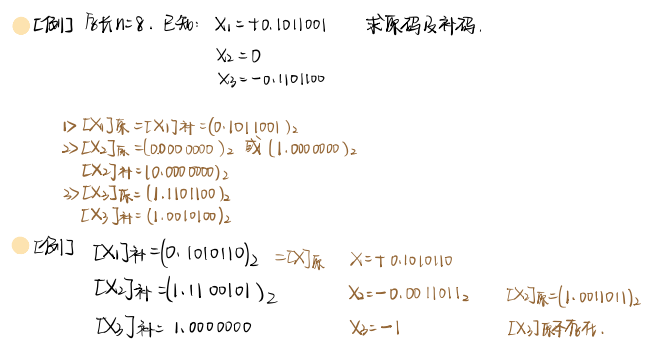 [例] 字长n=8. 已知: X₁=+0.1011001 求原码及补码.
X₂=0
X₃=-0.1101100
1> [X₁]原=[X₁]补=(0.1011001)₂
2> [X₂]原=(0.0000000)₂ 或 (1.0000000)₂
[X₂]补=(0.0000000)₂
3> [X₃]原=(1.1101100)₂
[X₃]补=(1.0010100)₂
[例] [X₁]补=(0.1010110)₂ =[X]原 X=+0.1010110
[X₂]补=(1.1100101)₂ X₂=-0.0011011₂ [X₂]原=(1.0011011)₂
[X₃]补=1.0000000 X₃=-1 [X₃]原不存在.